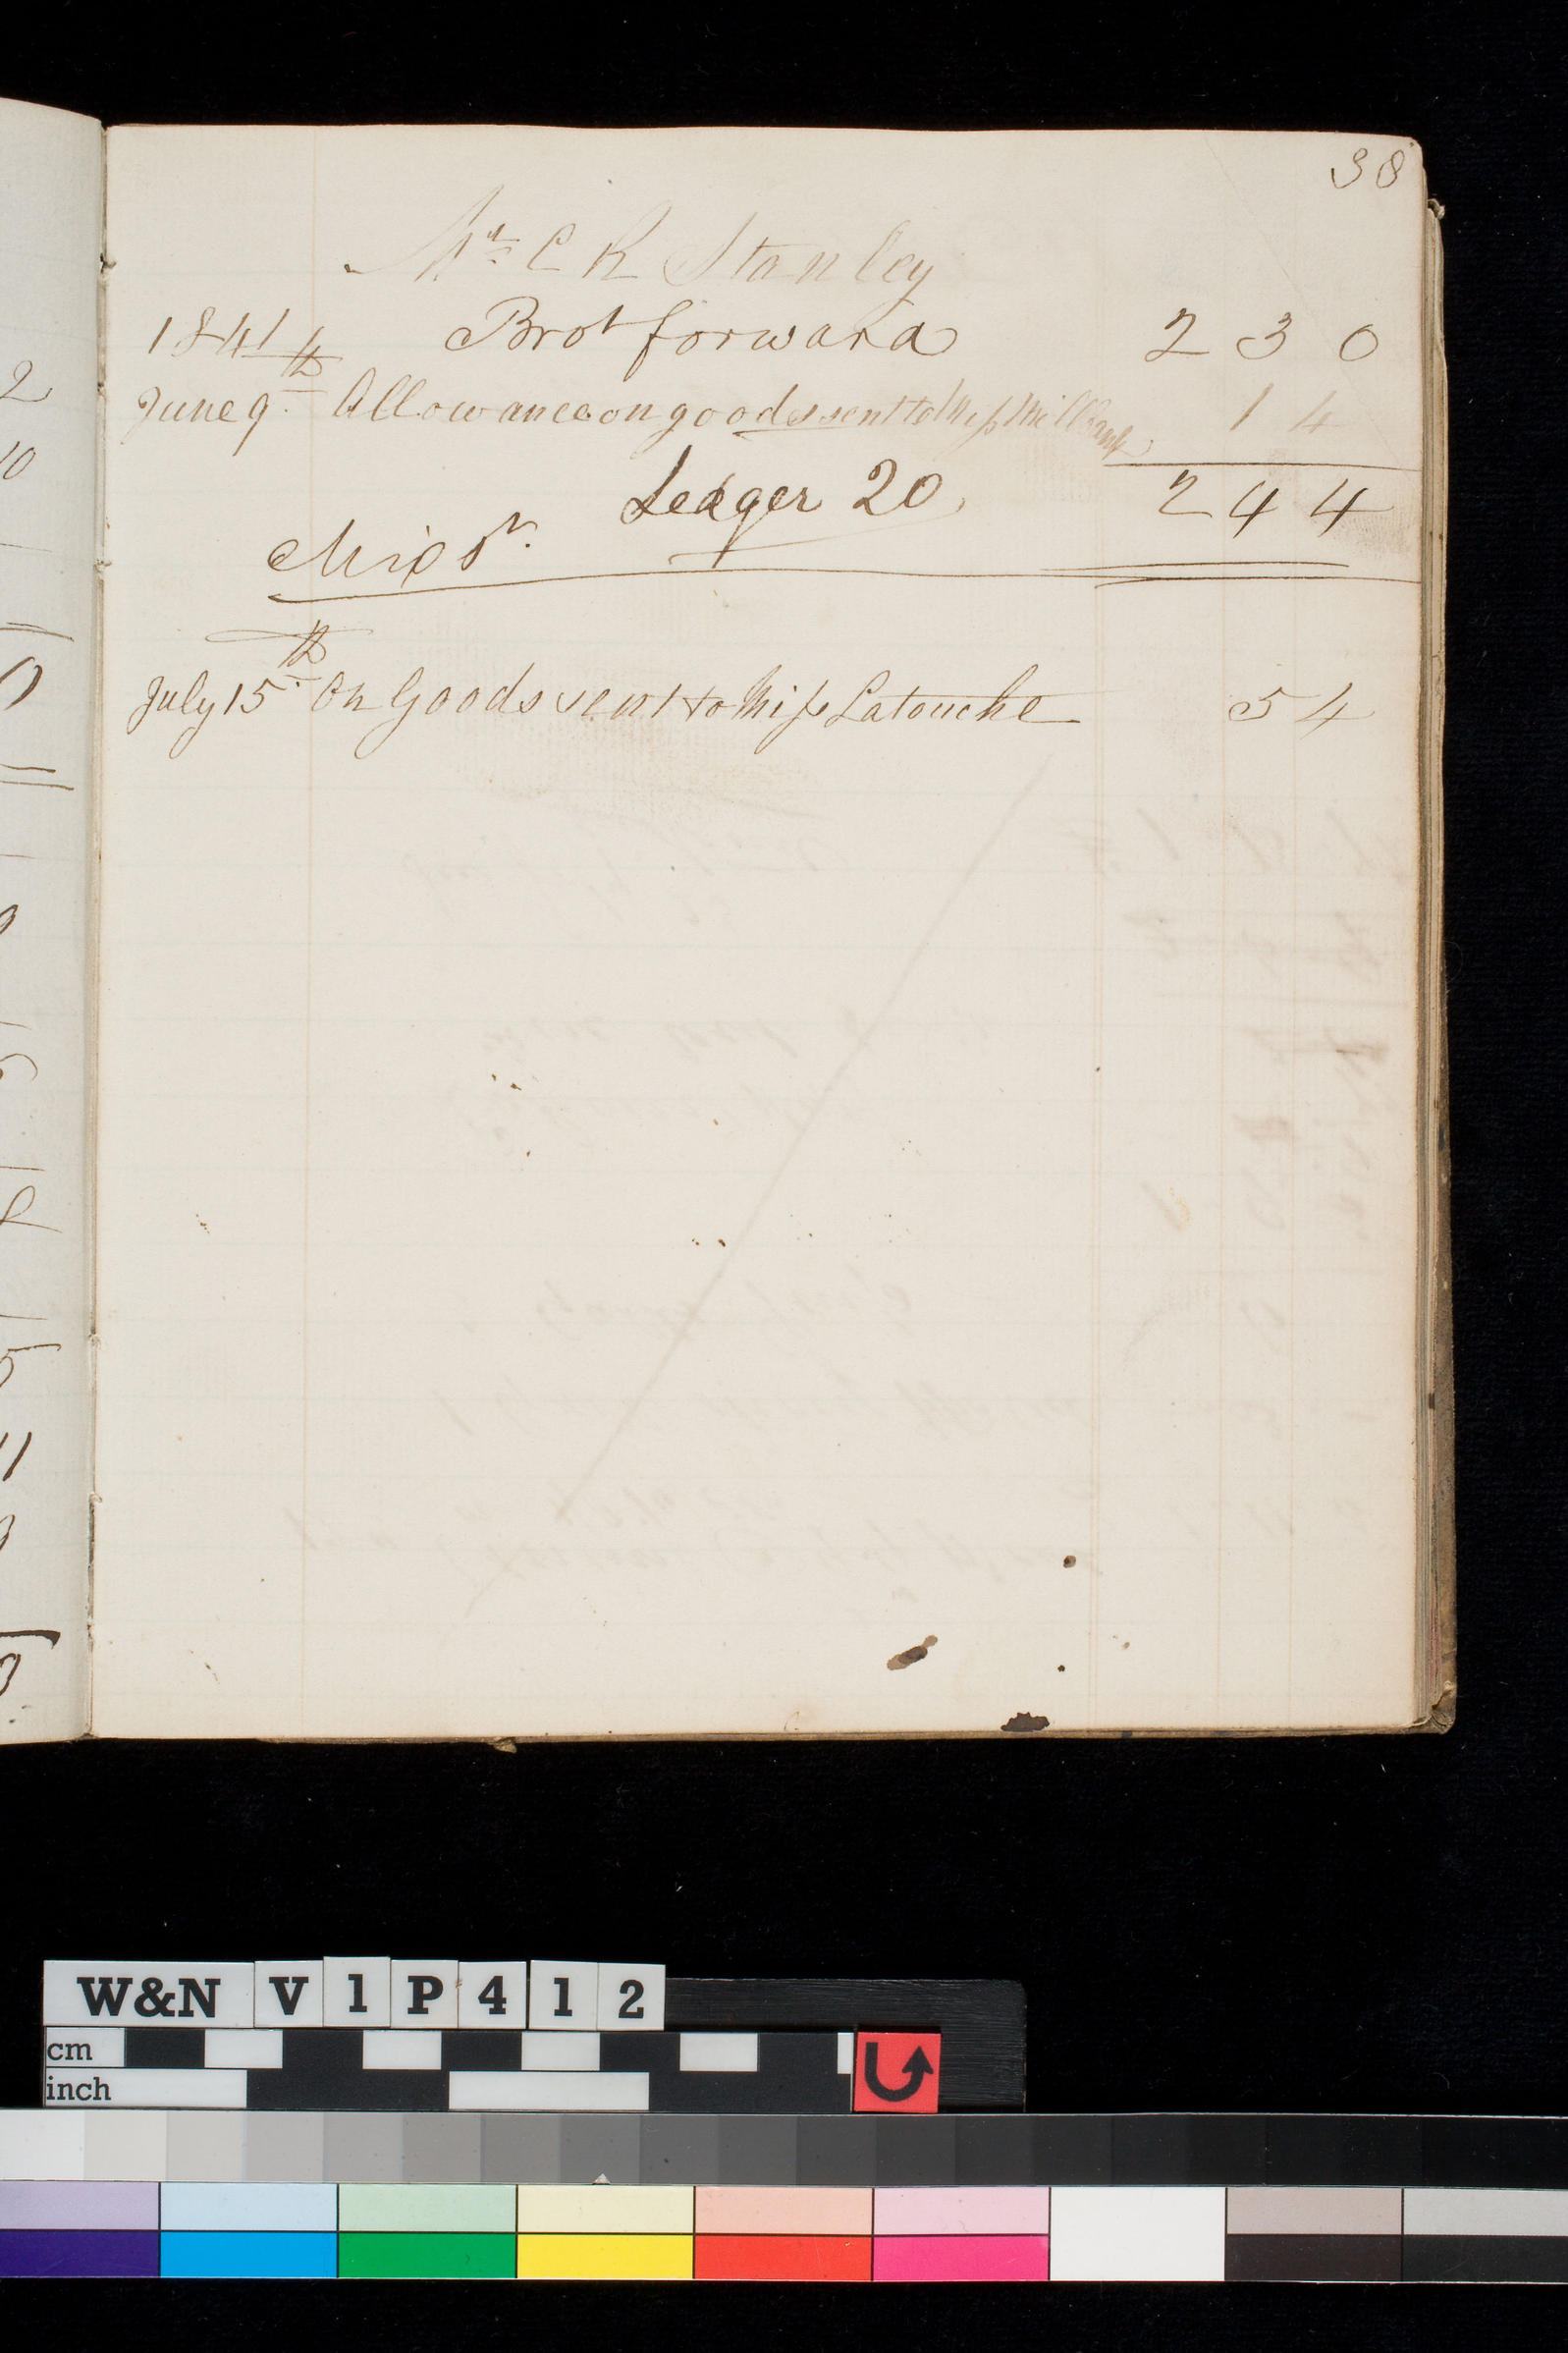 38
Mr. C R Stanley
1841 Brot forward 2 3 0
June 9th. Allowance on goods sent to Miss Millbank 1 4
Ledger 20 2 4 4
July 15th. On Goods sent to Miss Latouche 5 4
W&N V 1 P 4 1 2
cm
inch